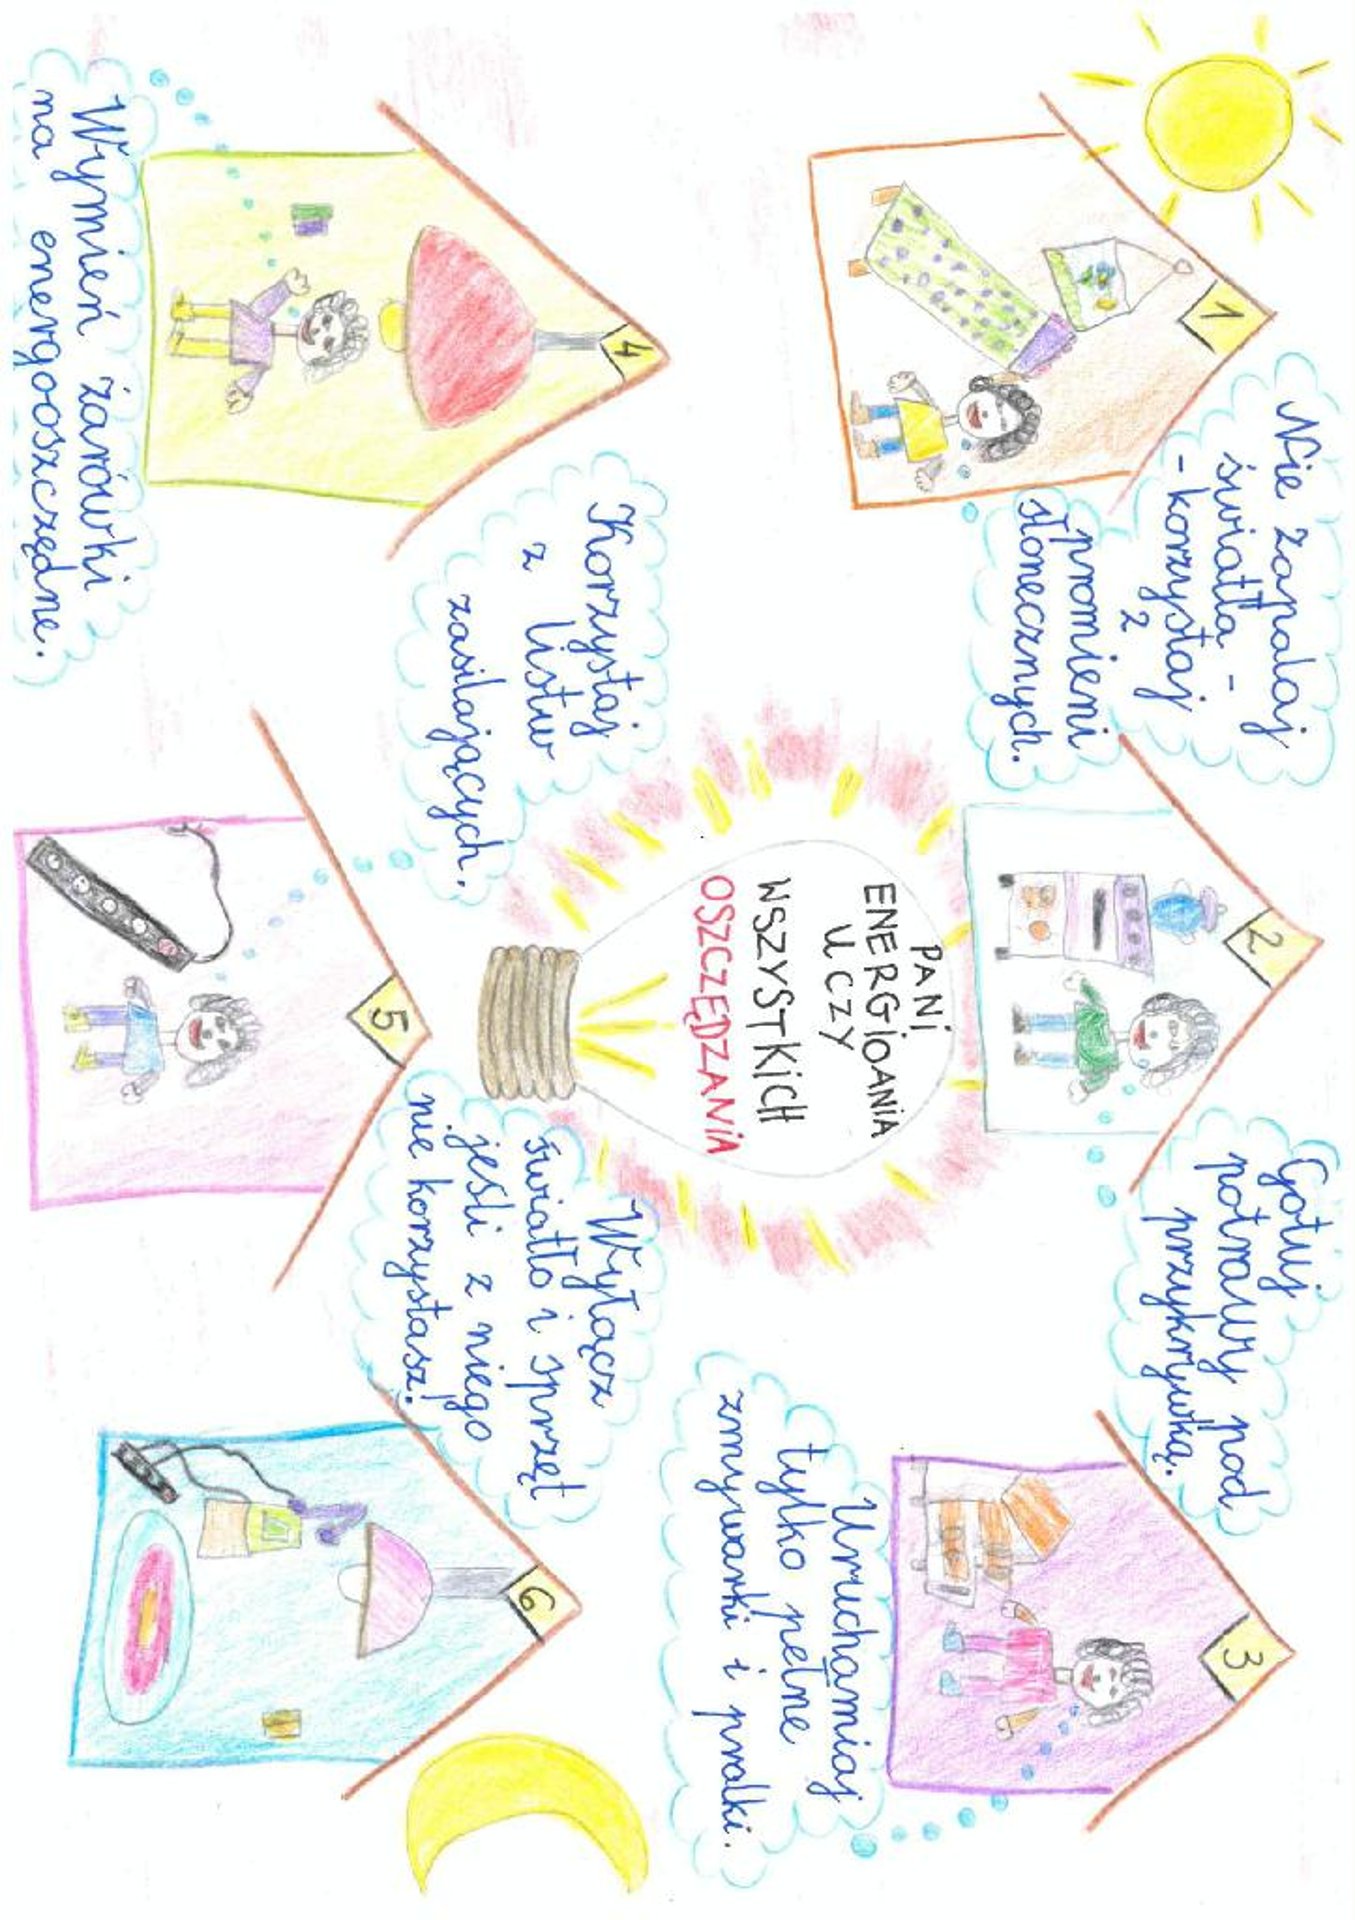 1
Nie zapalaj
światła -
- korzystaj
z
promieni
słonecznych.
2
Gotuj
potrawy pod
przykrywką.
3
Uruchamiaj
tylko pełne
zmywarki i pralki.
PANi
ENERGiOANiA
UCZY
WSZYSTKiCH
OSZCZĘDZANiA
4
Wymień żarówki
na energooszczędne.
5
Korzystaj
z listw
zasilających.
6
Wyłącz
światło i sprzęt
jeśli z niego
nie korzystasz!